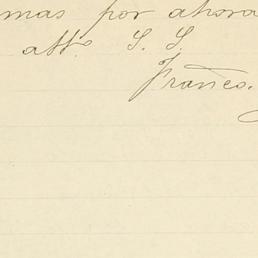 mas por ahora
att. S. S.
Franco.